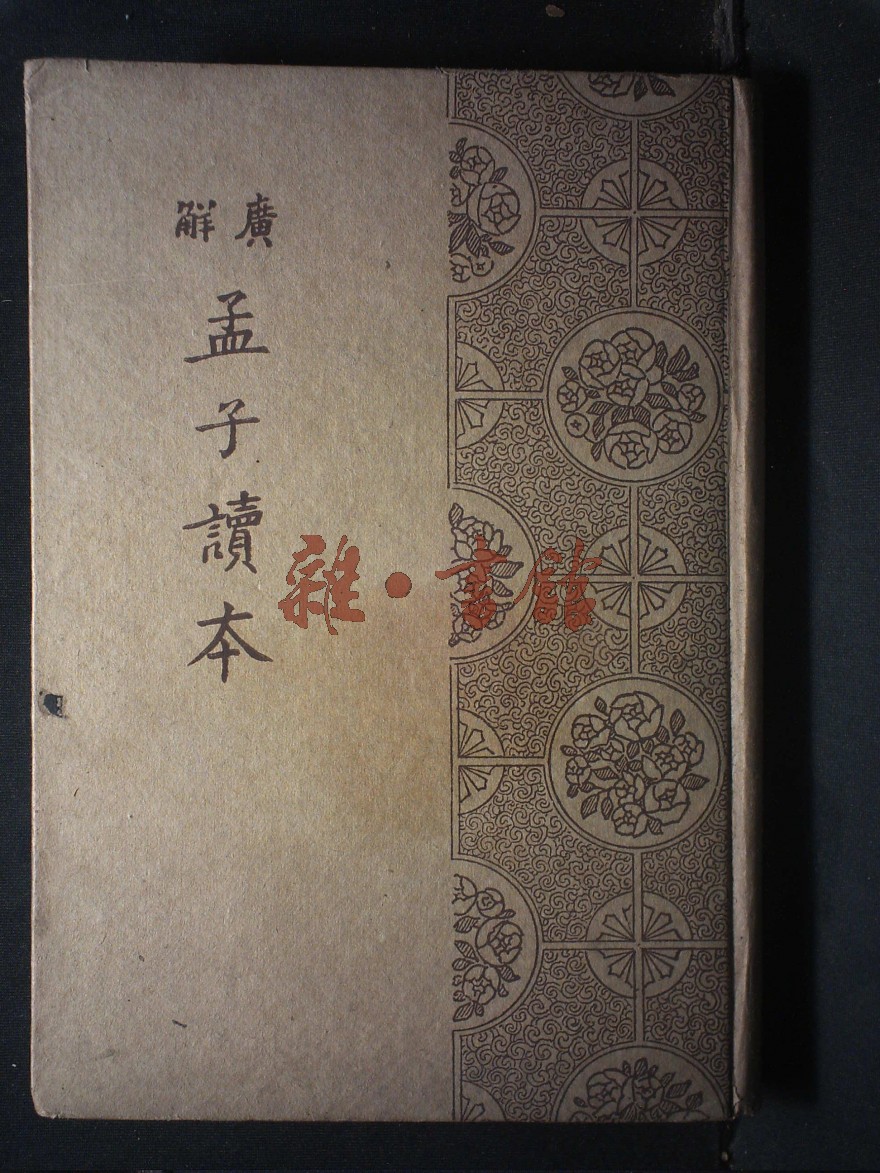 廣解
孟子讀本
雜·書館